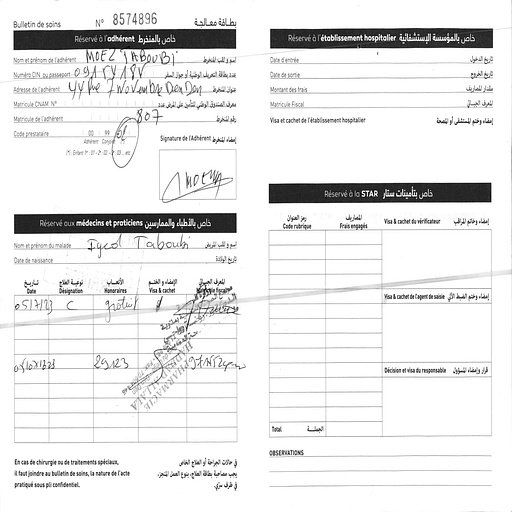 Bulletin de soins N° 8574896 بطاقة معالجة
Réservé à l'adhérent خاص بالمنخرط
Nom et prénom de l'adhérent MOEZ TABOUBI إسم و لقب المنخرط
Numéro CIN, ou passeport عدد بطاقة التعريف الوطنية أو جواز السفر
Adresse de l'adhérent 44 Rue 7 Novembre Den Den عنوان المنخرط
Matricule CNAM N° معرف الصندوق الوطني للتأمين على المرض عدد
Matricule de l'adhérent 807 رقم المنخرط
Code prestataire 00 99 01 Signature de l'Adhérent إمضاء المنخرط
Adhérent Conjoint (*)
(*) : Enfant 1er : 01 - 2è : 02 - 3è : 03 ... etc
MOEZ
Réservé aux médecins et praticiens خاص بالأطباء والممارسين
Nom et prénom du malade Eyed Taboubi إسم و لقب المريض
Date de naissance تاريخ الولادة
تاريخ نوعية العلاج الأتعاب الإمضاء و الختم المعرف الجبائي
Date Désignation Honoraires Visa & cachet Matricule fiscale
05/7/23 C gratuit
29,123
PHARMACIE
En cas de chirurgie ou de traitements spéciaux,
il faut joindre au bulletin de soins, la nature de l'acte
pratiqué sous pli confidentiel.
في حالات الجراحة أو العلاج الخاص
يجب مصاحبة بطاقة العلاج، بنوع العمل المنجز،
في ظرف سري.
Réservé à l'établissement hospitalier خاص بالمؤسسة الإستشفائية
Date d'entrée تاريخ الدخول
Date de sortie تاريخ الخروج
Montant des frais مقدار المصاريف
Matricule Fiscal المعرف الجبائي
Visa et cachet de l'établissement hospitalier إمضاء وختم المستشفى أو المصحة
Réservé à la STAR خاص بتأمينات ستار
رمز العنوان المصاريف Visa & cachet du vérificateur إمضاء وخاتم المراقب
Code rubrique Frais engagés
Visa & cachet de l'agent de saisie إمضاء وختم الضبط الآلي
Décision et visa du responsable قرار وإمضاء المسؤول
Total الجملة
OBSERVATIONS